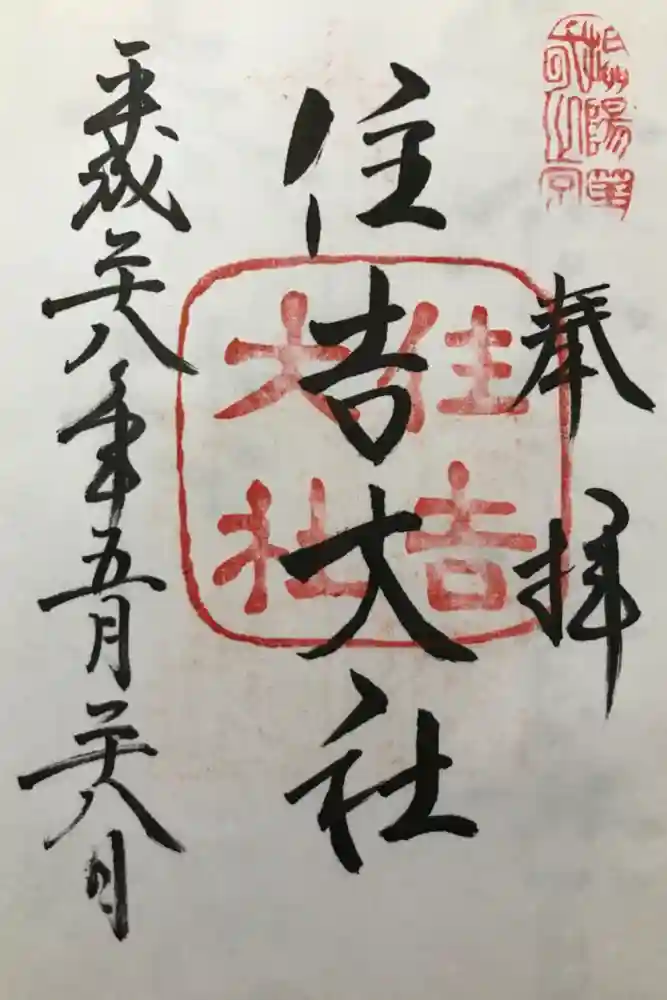 奉拝
住吉大社
平成二十八年五月二十八日
住吉
大社